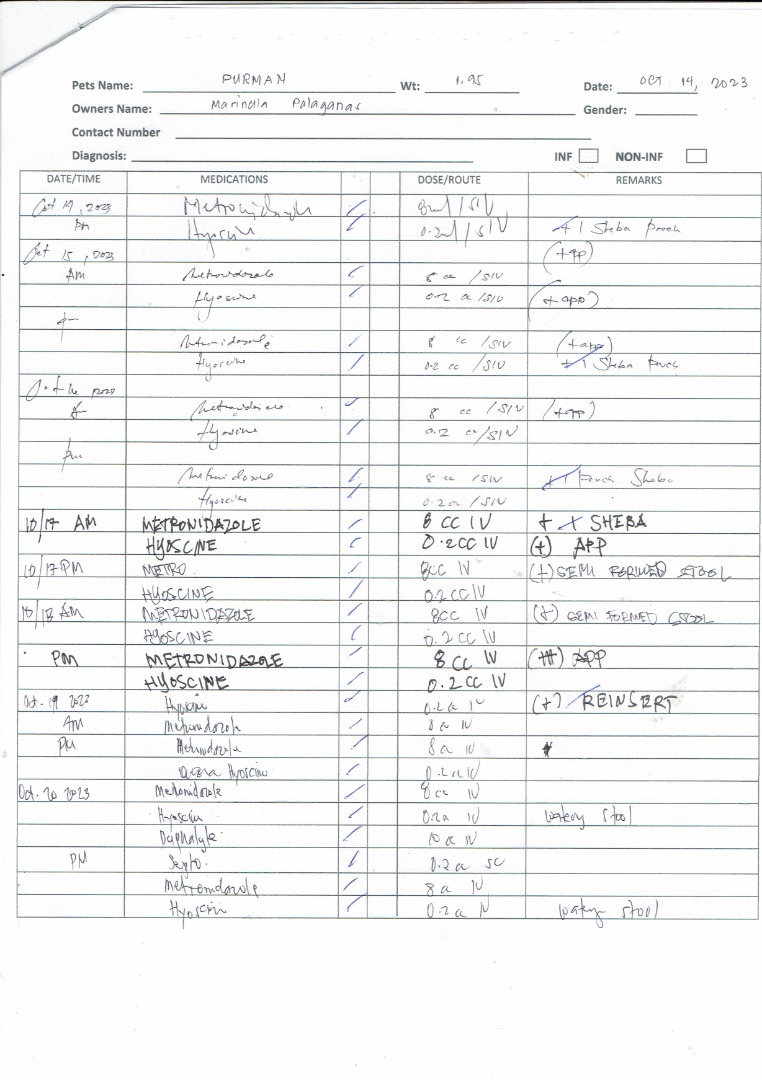 Pets Name: PURMAN Wt: 1.95 Date: OCT 14, 2023
Owners Name: Palaganas Gender:
Contact Number
Diagnosis: INF NON-INF
DATE/TIME MEDICATIONS DOSE/ROUTE REMARKS
2023 Metronidazole 8ml /SIV
Pm Hyoscin 0.2ml /SIV + 1 Sheba Pouch
Oct 15, 2023 (+app)
Am Metronidazole 8 cc /SIV
Hyoscine 0.2 cc /SIV (+app)
Metronidazole 8 cc /SIV (+app)
Hyoscine 0.2 cc /SIV + 1 Sheba Pouch
Metronidazole 8 cc /SIV (+app)
Hyoscine 0.2 cc/SIV
pm
Metronidazole 8 cc /SIV +1 Pouch Sheba
Hyoscine 0.2 cc /SIV
10/17 AM METRONIDAZOLE 8 CC IV + SHEBA
HYOSCINE 0.2CC IV (+) APP
10/17 PM METRO 8CC IV (+) SEMI FORMED STOOL
HYOSCINE 0.2CC IV
10/18 AM METRONIDAZOLE 8CC IV (+) SEMI FORMED STOOL
HYOSCINE 0.2 CC IV
PM METRONIDAZOLE 8 CC IV APP
HYOSCINE 0.2 CC IV
Oct. 19 2023 Hyoscin 0.2 cc IV REINSERT
AM Metronidazole 8 cc IV
PM Metronidazole 8 cc IV
Hyoscine 0.2 cc IV
Oct. 20 2023 Metronidazole 8cc IV
Hyoscin 0.2 cc IV watery stool
Duphalyte 10 cc IV
PM 0.2 cc SC
Metronidazole 8 cc IV
Hyoscin 0.2 cc IV watery stool